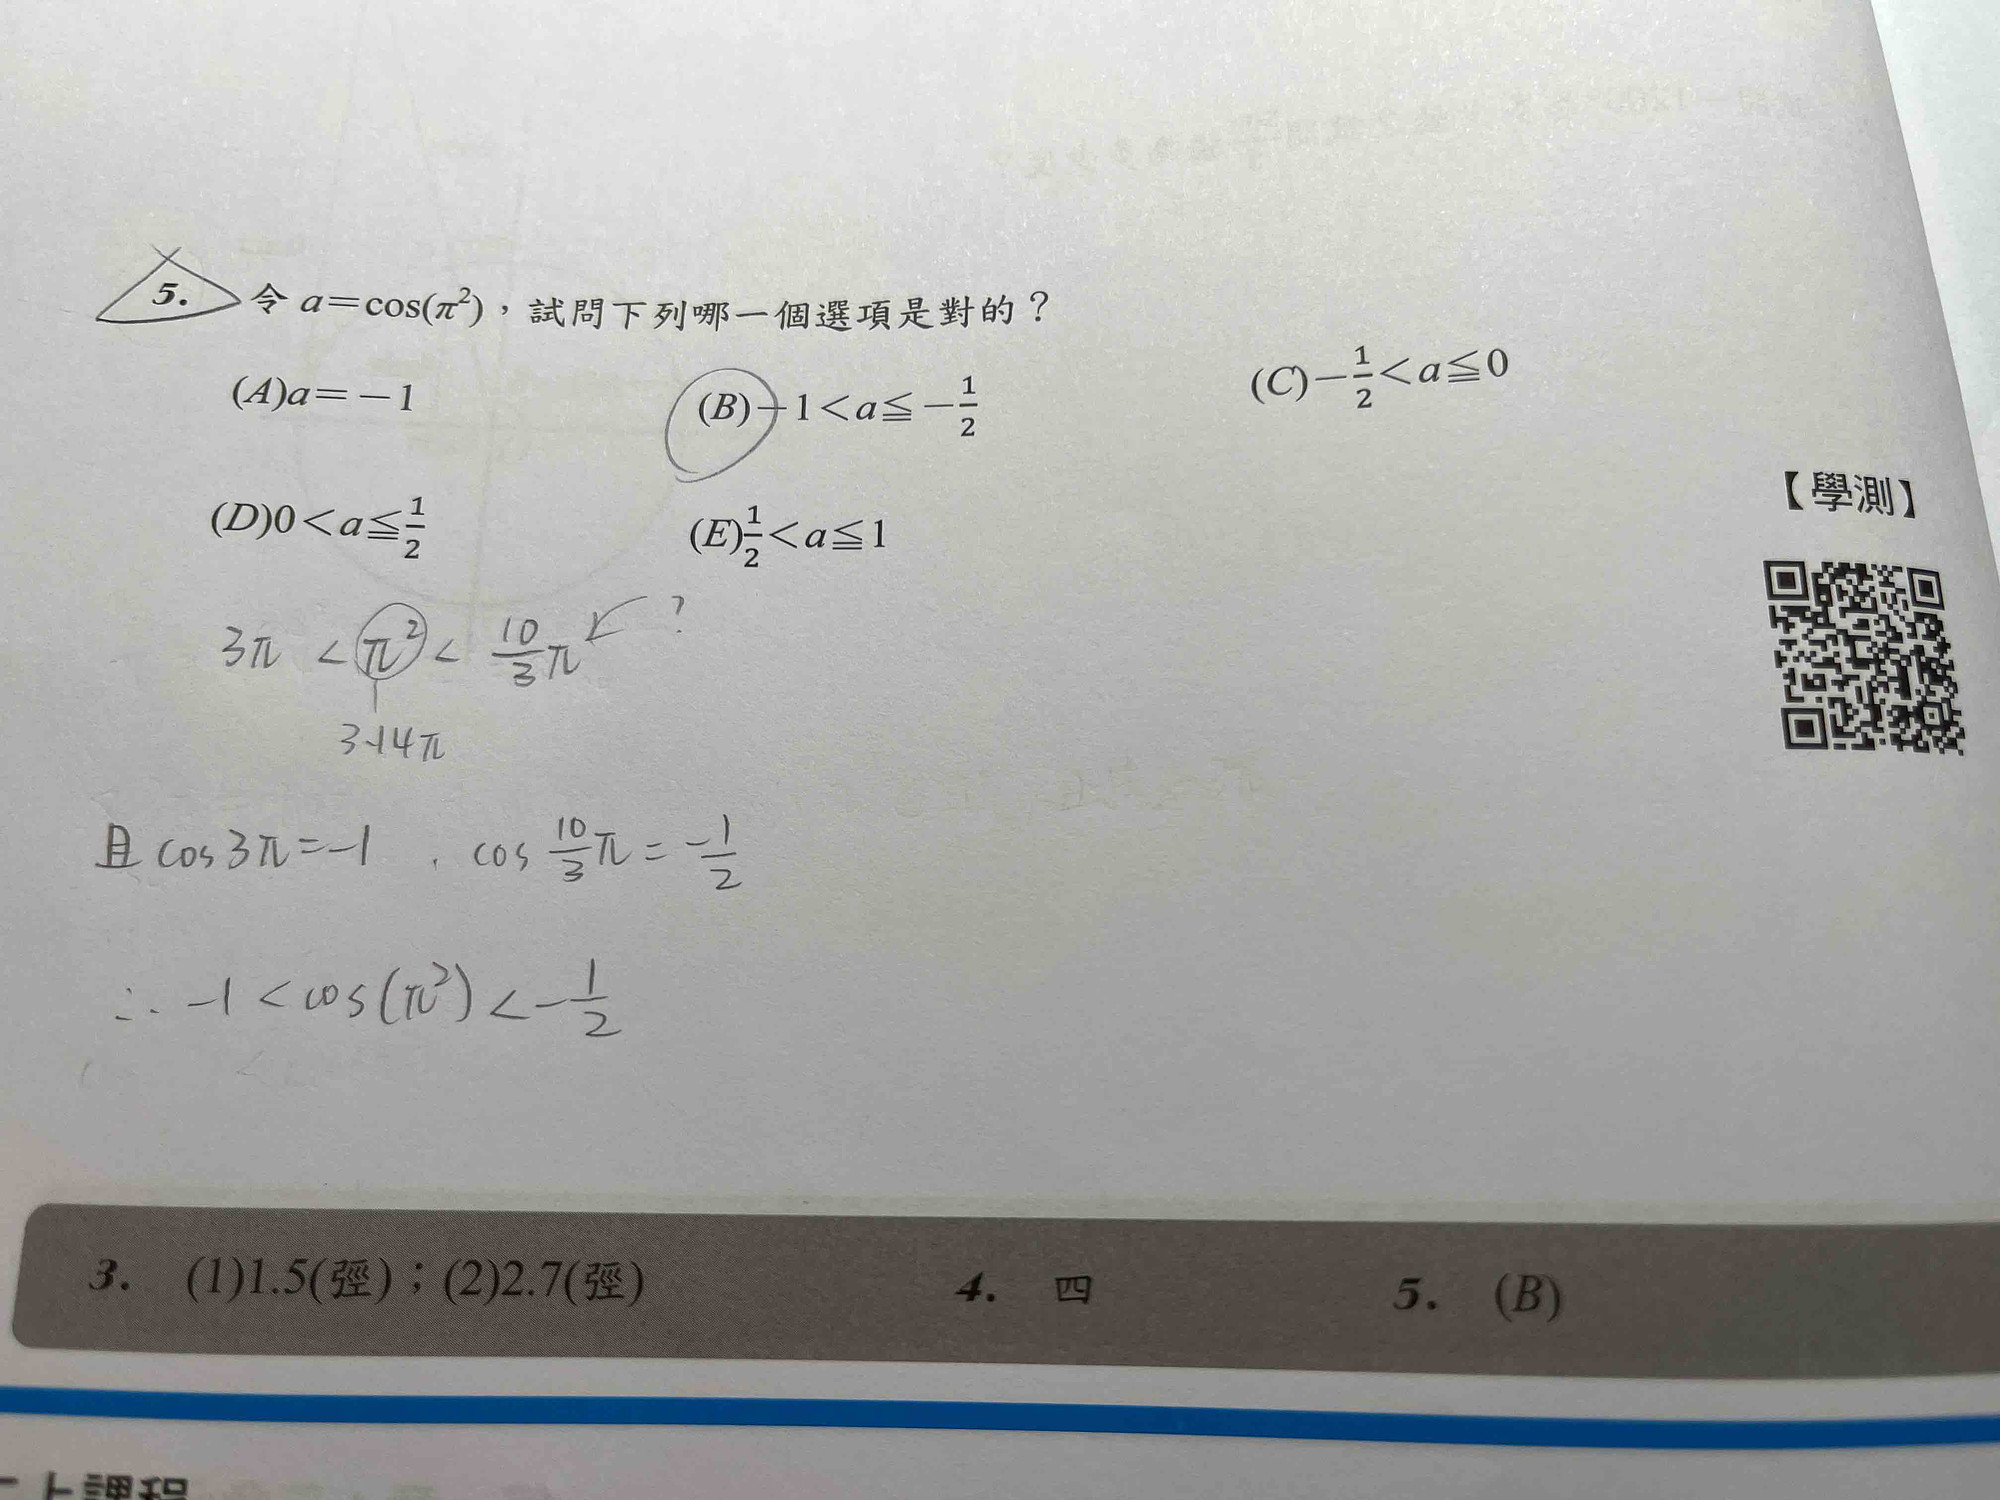 5. 令 a＝cos(π²)，試問下列哪一個選項是對的？
(A)a＝－1 (B)－1＜a≦－1/2 (C)－1/2＜a≦0
(D)0＜a≦1/2 (E)1/2＜a≦1
【學測】
3π < π² < 10/3 π ?
3.14π
且 cos3π = -1 , cos 10/3 π = -1/2
∴ -1 < cos(π²) < -1/2
3. (1)1.5(弳)；(2)2.7(弳) 4. 四 5. (B)
上課程